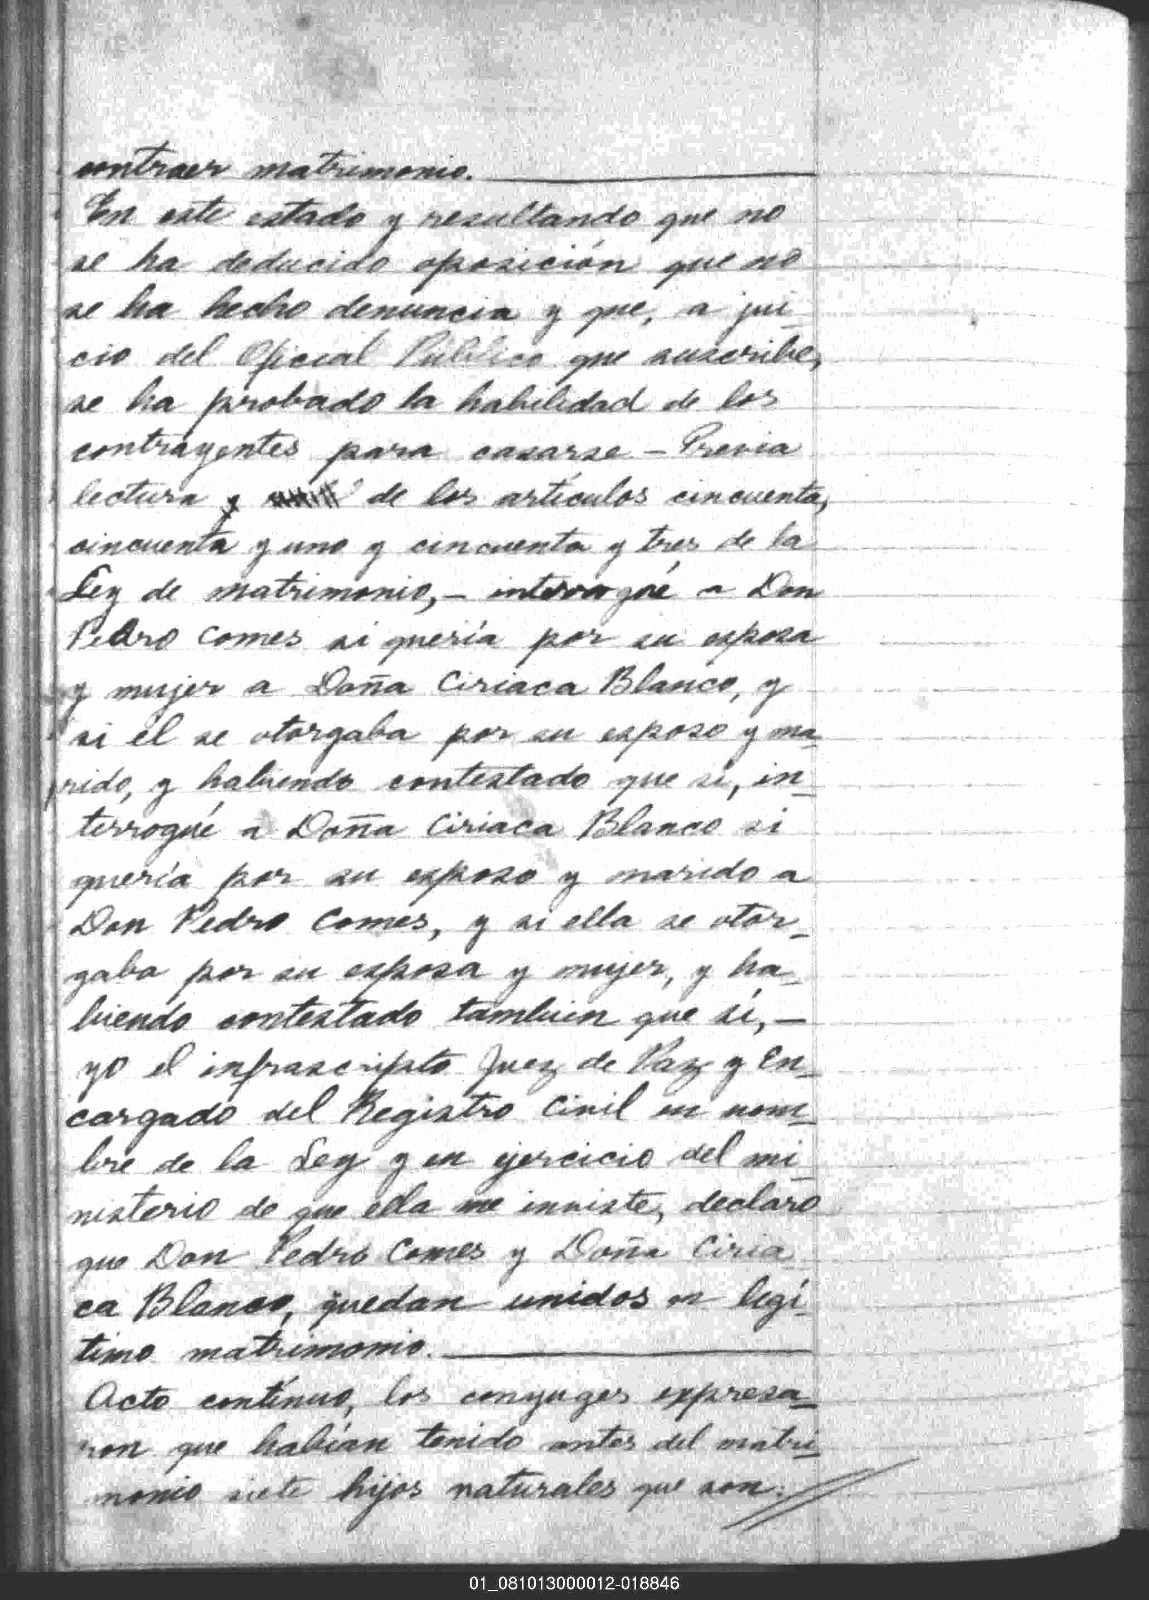 contraer matrimonio.
En este estado y resultando que no
se ha deducido oposición que no
se ha hecho denuncia y que, a jui
cio del Oficial Público que suscribe,
se ha probado la habilidad de los
contrayentes para casarse - Previa
lectura y de los artículos cincuenta,
cincuenta y uno y cincuenta y tres de la
Ley de matrimonio, - interrogué a Don
Pedro Comes si quería por su esposa
y mujer a Doña Ciriaca Blanco, y
si él se otorgaba por su esposo y ma_
rido, y habiendo contestado que si, in_
terrogué a Doña Ciriaca Blanco si
quería por su esposo y marido a
Don Pedro Comes, y si ella se otor_
gaba por su esposa y mujer, y ha_
biendo contestado tambien que sí, -
yo el infrascripto Juez de Paz y En_
cargado del Registro Civil en nom_
bre de la Ley y en ejercicio del mi_
nisterio de que ella me inviste, declaro
que Don Pedro Comes y Doña Ciria_
ca Blanco, quedan unidos en legí_
timo matrimonio.
Acto contínuo, los conyuges expresa_
ron que habían tenido antes del matri_
monio siete hijos naturales que son:
01_081013000012-018846